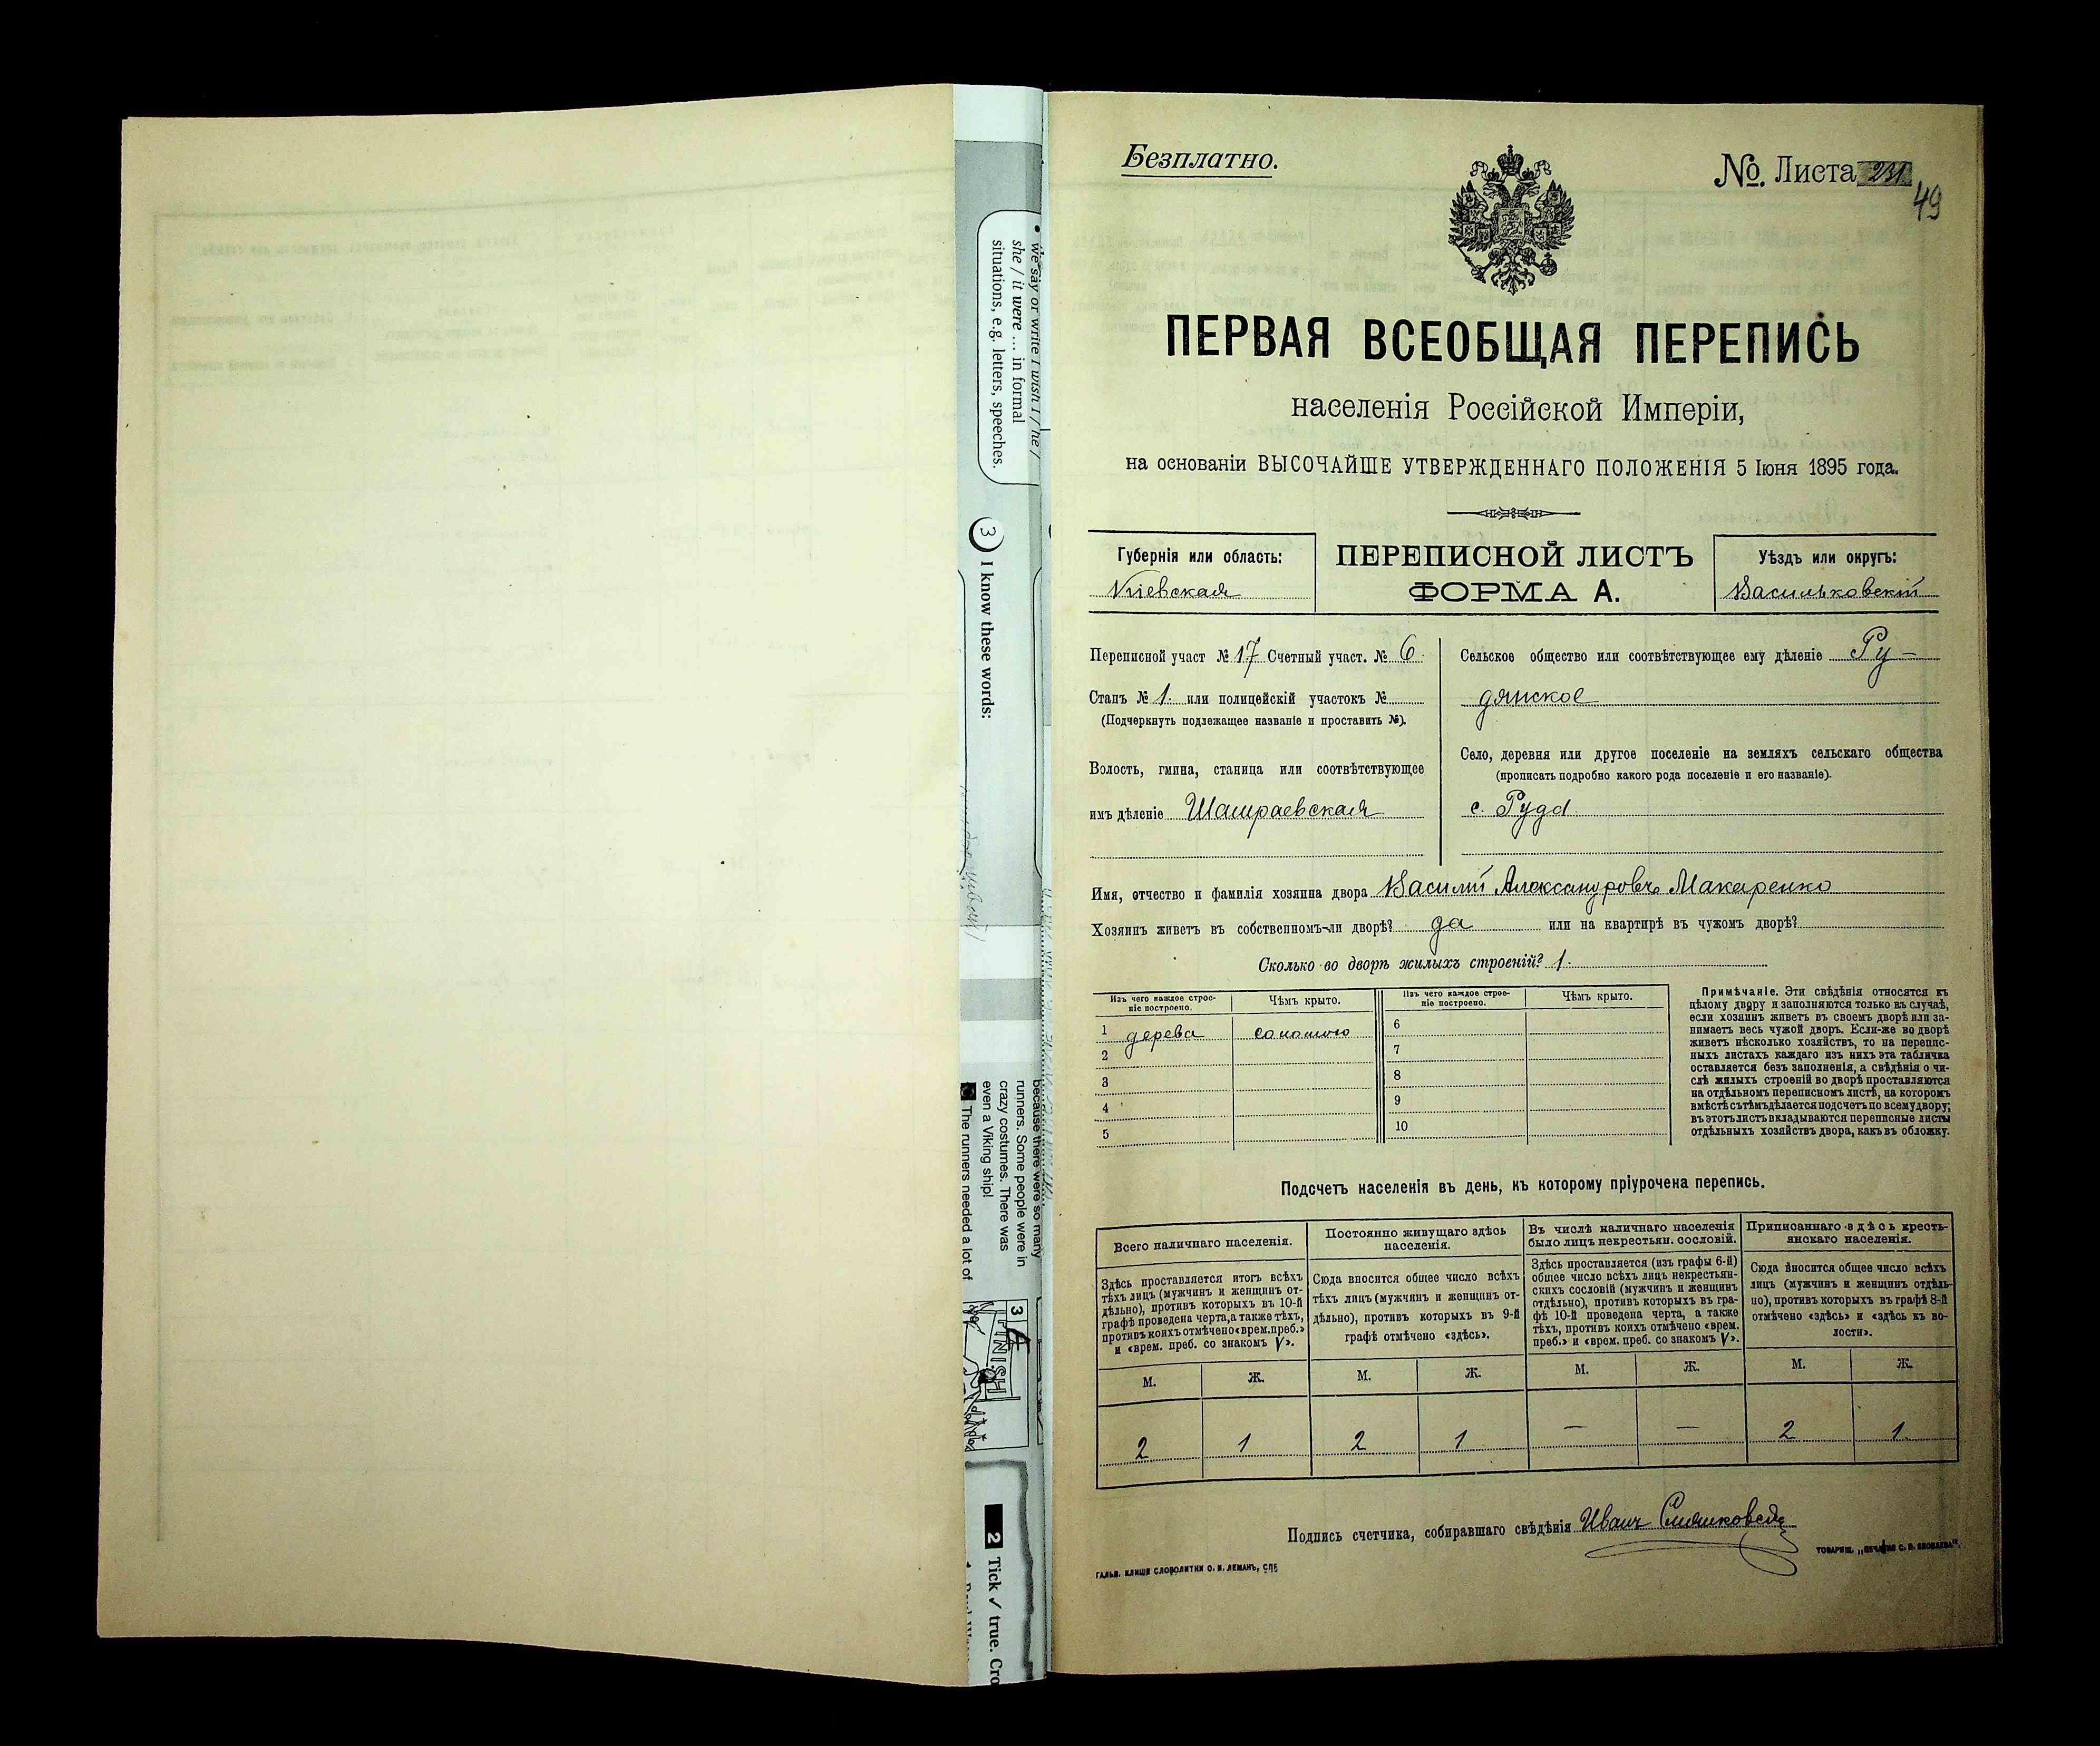 • we say or write I wish I / he /
she / it were ... in formal
situations, e.g. letters, speeches.
3 I know these words:
because there were so many
runners. Some people were in
crazy costumes. There was
even a Viking ship!
The runners needed a lot of
3
FINISH
2 Tick ✓ true. Cro
Безплатно.
№. Листа 231
49
ПЕРВАЯ ВСЕОБЩАЯ ПЕРЕПИСЬ
населенія Россійской Имперіи,
на основаніи ВЫСОЧАЙШЕ УТВЕРЖДЕННАГО ПОЛОЖЕНІЯ 5 Іюня 1895 года.
Губернія или область:
Кіевская
ПЕРЕПИСНОЙ ЛИСТЪ
ФОРМА А.
Уѣздъ или округъ:
Васильковскій
Переписной участ № 17 Счетный участ. № 6
Станъ № 1. или полицейскій участокъ №
(Подчеркнуть подлежащее названіе и проставить №).
Волость, гмина, станица или соотвѣтствующее
имъ дѣленіе Шамраевская
Сельское общество или соотвѣтствующее ему дѣленіе Ру-
дянское
Село, деревня или другое поселеніе на земляхъ сельскаго общества
(прописать подробно какого рода поселеніе и его названіе).
с. Руда
Имя, отчество и фамилія хозяина двора Василій Александровъ Макаренко
Хозяинъ живетъ въ собственномъ-ли дворѣ? да или на квартирѣ въ чужомъ дворѣ?
Сколько во дворѣ жилыхъ строеній? 1.
Изъ чего каждое строе-
ніе построено.
Чѣмъ крыто.
Изъ чего каждое строе-
ніе построено.
Чѣмъ крыто.
1 дерева соломою 6
2 7
3 8
4 9
5 10
Примѣчаніе. Эти свѣдѣнія относятся къ
цѣлому двору и заполняются только въ случаѣ,
если хозяинъ живетъ въ своемъ дворѣ или за-
нимаетъ весь чужой дворъ. Если-же во дворѣ
живетъ нѣсколько хозяйствъ, то на перепис-
ныхъ листахъ каждаго изъ нихъ эта табличка
оставляется безъ заполненія, а свѣдѣнія о чи-
слѣ жилыхъ строеній во дворѣ проставляются
на отдѣльномъ переписномъ листѣ, на которомъ
вмѣстѣ съ тѣмъ дѣлается подсчетъ по всему двору;
въ этотъ листъ вкладываются переписные листы
отдѣльныхъ хозяйствъ двора, какъ въ обложку.
Подсчетъ населенія въ день, къ которому пріурочена перепись.
Всего наличнаго населенія.
Постоянно живущаго здѣсь
населенія.
Въ числѣ наличнаго населенія
было лицъ некрестьян. сословій.
Приписаннаго здѣсь кресть-
янскаго населенія.
Здѣсь проставляется итогъ всѣхъ
тѣхъ лицъ (мужчинъ и женщинъ от-
дѣльно), противъ которыхъ въ 10-й
графѣ проведена черта, а также тѣхъ,
противъ коихъ отмѣчено «врем. преб.»
и «врем. преб. со знакомъ V».
Сюда вносится общее число всѣхъ
тѣхъ лицъ (мужчинъ и женщинъ от-
дѣльно), противъ которыхъ въ 9-й
графѣ отмѣчено «здѣсь».
Здѣсь проставляется (изъ графы 6-й)
общее число всѣхъ лицъ некрестьян-
скихъ сословій (мужчинъ и женщинъ
отдѣльно), противъ которыхъ въ гра-
фѣ 10-й проведена черта, а также
тѣхъ, противъ коихъ отмѣчено «врем.
преб.» и «врем. преб. со знакомъ V».
Сюда вносится общее число всѣхъ
лицъ (мужчинъ и женщинъ отдѣль-
но), противъ которыхъ въ графѣ 8-й
отмѣчено «здѣсь» и «здѣсь къ во-
лости».
М. Ж. М. Ж. М. Ж. М. Ж.
2 1 2 1 — — 2 1
Подпись счетчика, собиравшаго свѣдѣнія Иванъ
ГАЛЬВ. КЛИШЕ СЛОВОЛИТНИ О. И. ЛЕМАНЪ, СПБ
ТОВАРИЩ. „ПЕЧАТНЯ С. П. ЯКОВЛЕВА".